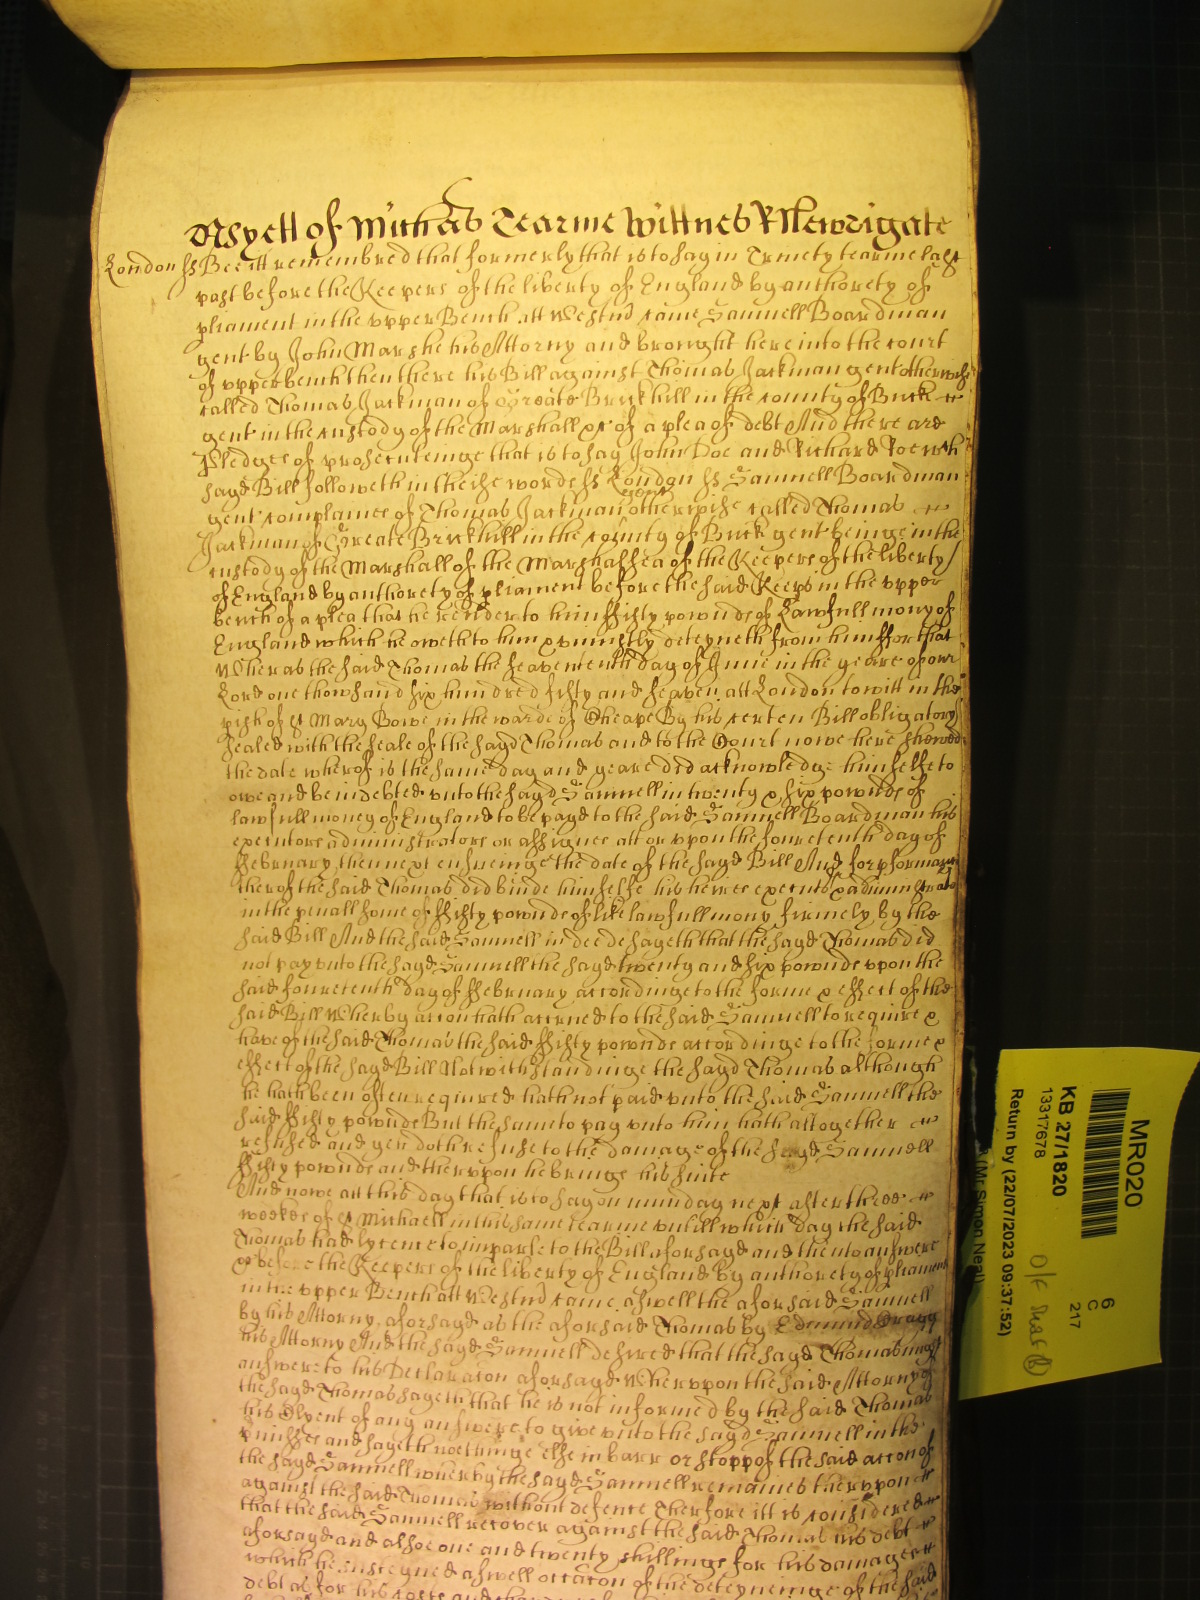 As yett of Michas Tearme Wittnes R Newdigate
London ss Bee itt remembred that formerly that is to say in Trinety tearme last
past before the Keepers of the liberty of England by authorety of
pliament in the upper Bench att Westmr came Samuell Boardman
gent by John Marshe his Attorny and brought here into the court
of upper bench then there his Bill against Thomas Jackman gent otherwise
called Thomas Jackman of Greate Brickhill in the county of Buck
gent in the custody of the Marshall &c of a plea of debt And there are
Pledges of prosecuteinge that is to say John Doe and Richard Roe wch
sayd Bill followeth in theise words ss London ss Samuell Boardman
gent complaines of Thomas Jackman gent otherwise called Thomas
Jackman of Greate Brickhill in the county of Buck gent beinge in the
custody of the Marshall of the Marshalsea of the Keepers of the liberty
of England by authorety of pliament before the said Keeps in the upper
bench of a plea that he render to him ffifty pownds of Lawfull mony of
England which he oweth to him & uniustly deteyneth from him ffor that
Wheras the said Thomas the seavententh day of June in the yeare of our
Lord one thowsand six hundred fifty and seaven att London to witt in the
pish of St Mary Bowe in the warde of Cheape By his certen Bill obligatory
sealed with the seale of the sayd Thomas and to the Court nowe here shewed
the date wherof is the same day and yeare did acknowledge himselfe to
owe and be indebted unto the sayd Samuell in twenty & six pownds of
lawfull money of England to be payd to the said Samuell Boardman his
executors administrators or assignes att or upon the fouretenth day of
ffebruary then next ensueinge the date of the sayd Bill And for pformance
therof the said Thomas did binde himselfe his heires executrs & administrators
in the penall some of ffifty pownds of like lawfull mony firmely by the
said Bill And the said Samuell in deede sayeth that the sayd Thomas did
not pay unto the sayd Samuell the sayd twenty and six pownds upon the
said fouretenth day of ffebruary accordinge to the forme & effect of the
said Bill Wherby accon hath accrued to the said Samuell to require &
have of the said Thomas the said ffifty pownds accordinge to the forme &
effect of the sayd Bill Notwithstandinge the sayd Thomas although
he hath been often required hath not paid unto the said Samuell the
said ffifty pownds But the same to pay unto him hath altogether
refused and yett doth refuse to the damage of the sayd Samuell
ffifty pownds and therupon he brings his suite
And nowe att this day that is to say on munday next after three
weekes of St Michaell in this same tearme untill which day the said
Thomas had lycence to imparle to the Bill aforsayd and then to answere
&c before the Keepers of the liberty of England by authorety of pliament
in the upper Bench att Westmr came aswell the aforsaid Samuell
by his Attorny aforsayd as the aforsaid Thomas by Edmund Bragg
his Attorny And the sayd Samuell desired that the sayd Thomas may
answere to his Declaraton aforsayd Wherupon the said Attorny of
the sayd Thomas sayeth that he is not informed by the said Thomas
his Clyent of any answere to give unto the sayd Samuell in the
pmisses and sayeth noethinge else in barr or stopp of the said accon of
the sayd Samuell wherby the sayd Samuell remaines therupon
against the said Thomas without defence Therfore itt is considered
that the said Samuell recover against the said Thomas his debt
aforsayd and alsoe one and twenty shillings for his damages
which he susteyned aswell occaton of the deteyneinge of the said
debt as for his costs and
MR020
KB 27/1820
13317678
Return by (22/07/2023 09:37:52)
(Mr Simon Neal)
6
C
217